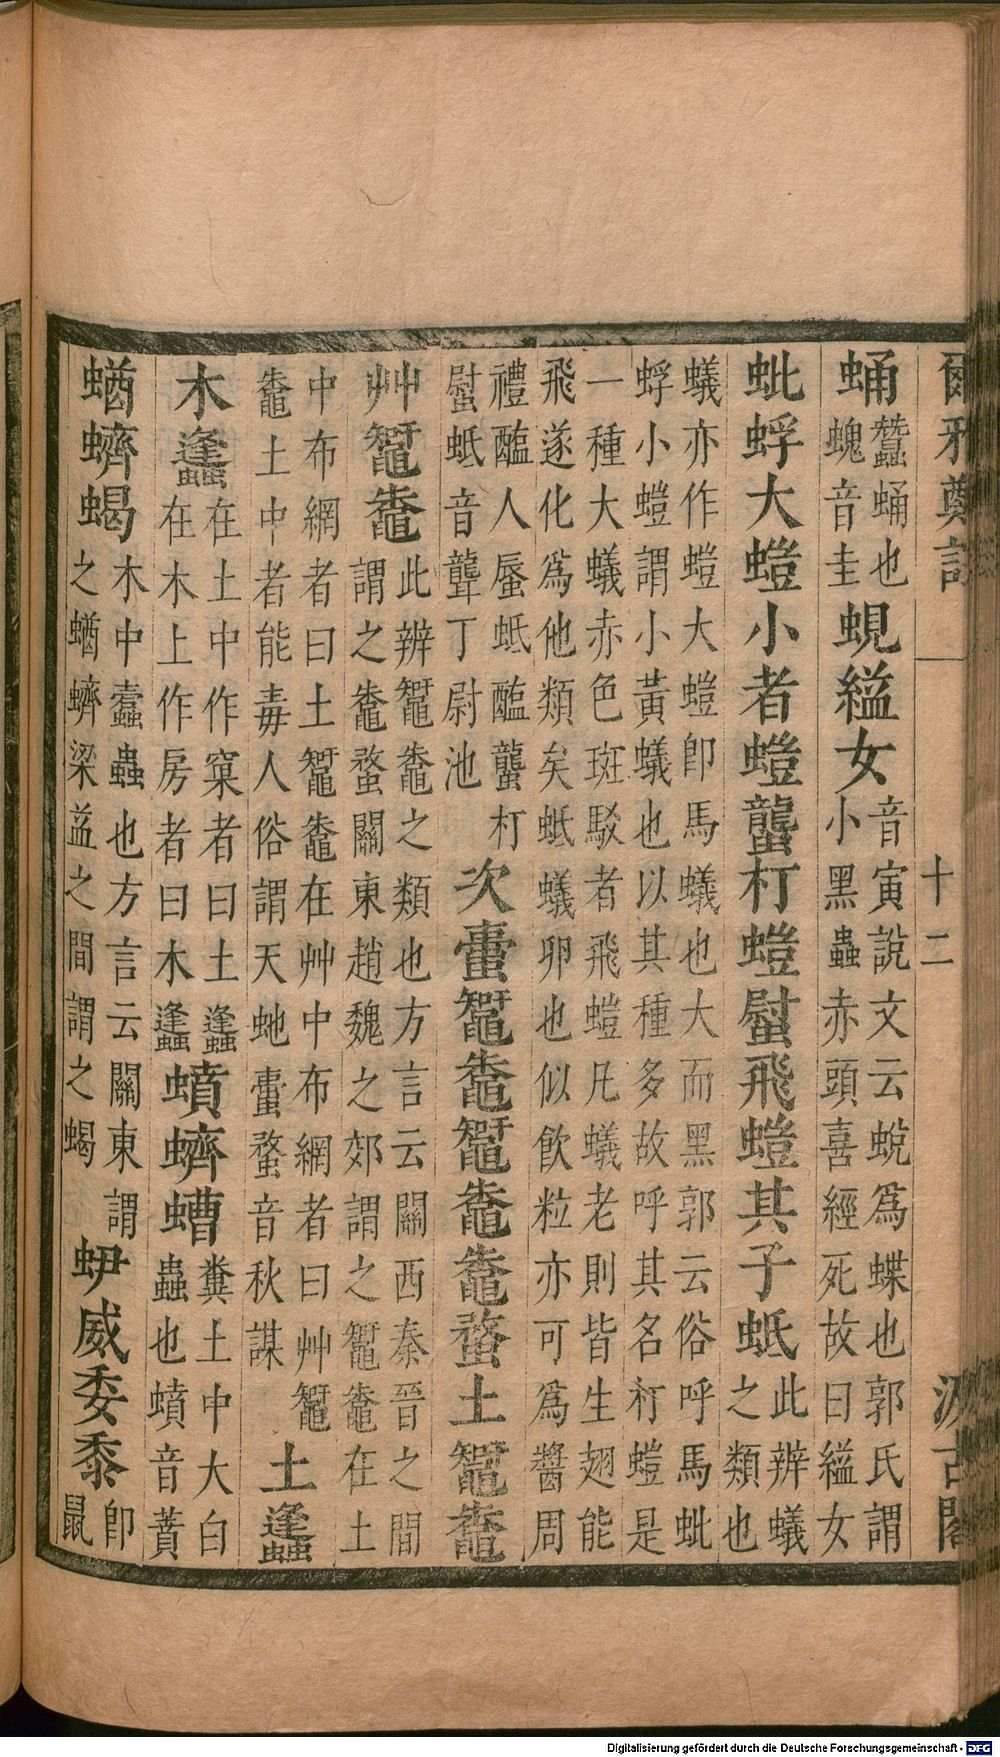 爾雅鄭註 十二 汲古閣
蛹蠶蛹也螝音圭蜆縊女音寅說文云蛻為蝶也郭氏謂小黑蟲赤頭喜經死故曰縊女
蚍蜉大螘小者螘蠪朾螘蟁飛螘其子蚳此辨蟻之類也
蟻亦作螘大螘卽馬蟻也大而黑郭云俗呼馬蚍
蜉小螘謂小黃蟻也以其種多故呼其名朾螘是
一種大蟻赤色斑駁者飛螘凡蟻老則皆生翅能
飛遂化為他類矣蚳蟻卵也似飲粒亦可為醬周
禮醢人蜃蚳醢蠪朾
蚳音聾丁尉池次蟗鼅鼄鼅鼄鼄蝥土鼅鼄
艸鼅鼄此辨鼅鼄之類也方言云關西秦晉之間謂之鼄蝥關東趙魏之郊謂之鼅鼄在土
中布網者曰土鼅鼄在艸中布網者曰艸鼅
鼄土中者能毒人俗謂天虵蟗蝥音秋謀土蠭
木蠭在土中作窠者曰土蠭在木上作房者曰木蠭蟦蠐螬糞土中大白蟲也蟦音蕡
蝤蠐蝎木中蠹蟲也方言云關東謂之蝤蠐梁益之間謂之蝎蛜威委黍卽鼠
Digitalisierung gefördert durch die Deutsche Forschungsgemeinschaft - DFG